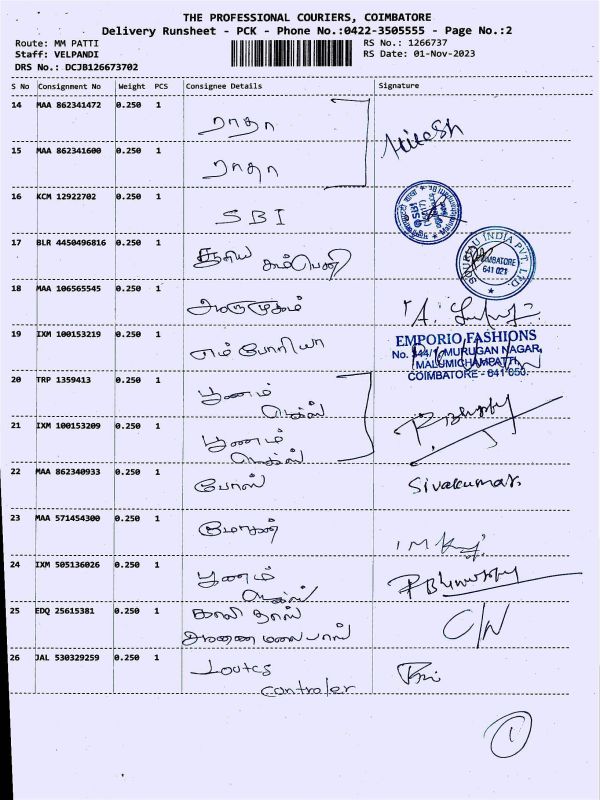 THE PROFESSIONAL COURIERS, COIMBATORE
Delivery Runsheet - PCK - Phone No.:0422-3505555 - Page No.:2
Route: MM PATTI RS No.: 1266737
Staff: VELPANDI RS Date: 01-Nov-2023
DRS No.: DCJB126673702
S No Consignment No Weight PCS Consignee Details Signature
14 MAA 862341472 0.250 1
ராதா
Hitesh
15 MAA 862341600 0.250 1
ராதா
16 KCM 12922702 0.250 1
SBI
17 BLR 4450496816 0.250 1
சூரிய கம்பெனி
INDIA PVT. LTD.
COIMBATORE
641 021
18 MAA 106565545 0.250 1
ஆறுமுகம்
19 IXM 100153219 0.250 1
எம் போரியா
EMPORIO FASHIONS
No. 344/1, MURUGAN NAGAR,
MALUMICHAMPATTI,
COIMBATORE - 641 050.
20 TRP 1359413 0.250 1
பூணம்
21 IXM 100153209 0.250 1
பூணம்
22 MAA 862340933 0.250 1
போஸ்
Sivakumar
23 MAA 571454300 0.250 1
மோகன்
24 IXM 505136026 0.250 1
பூணம்
25 EDQ 25615381 0.250 1
காளிதாஸ்
C/N
26 JAL 530329259 0.250 1
controler
1